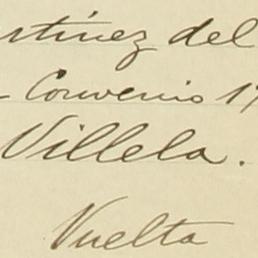 rtinez del
Convenio 1
Villela.
Vuelta